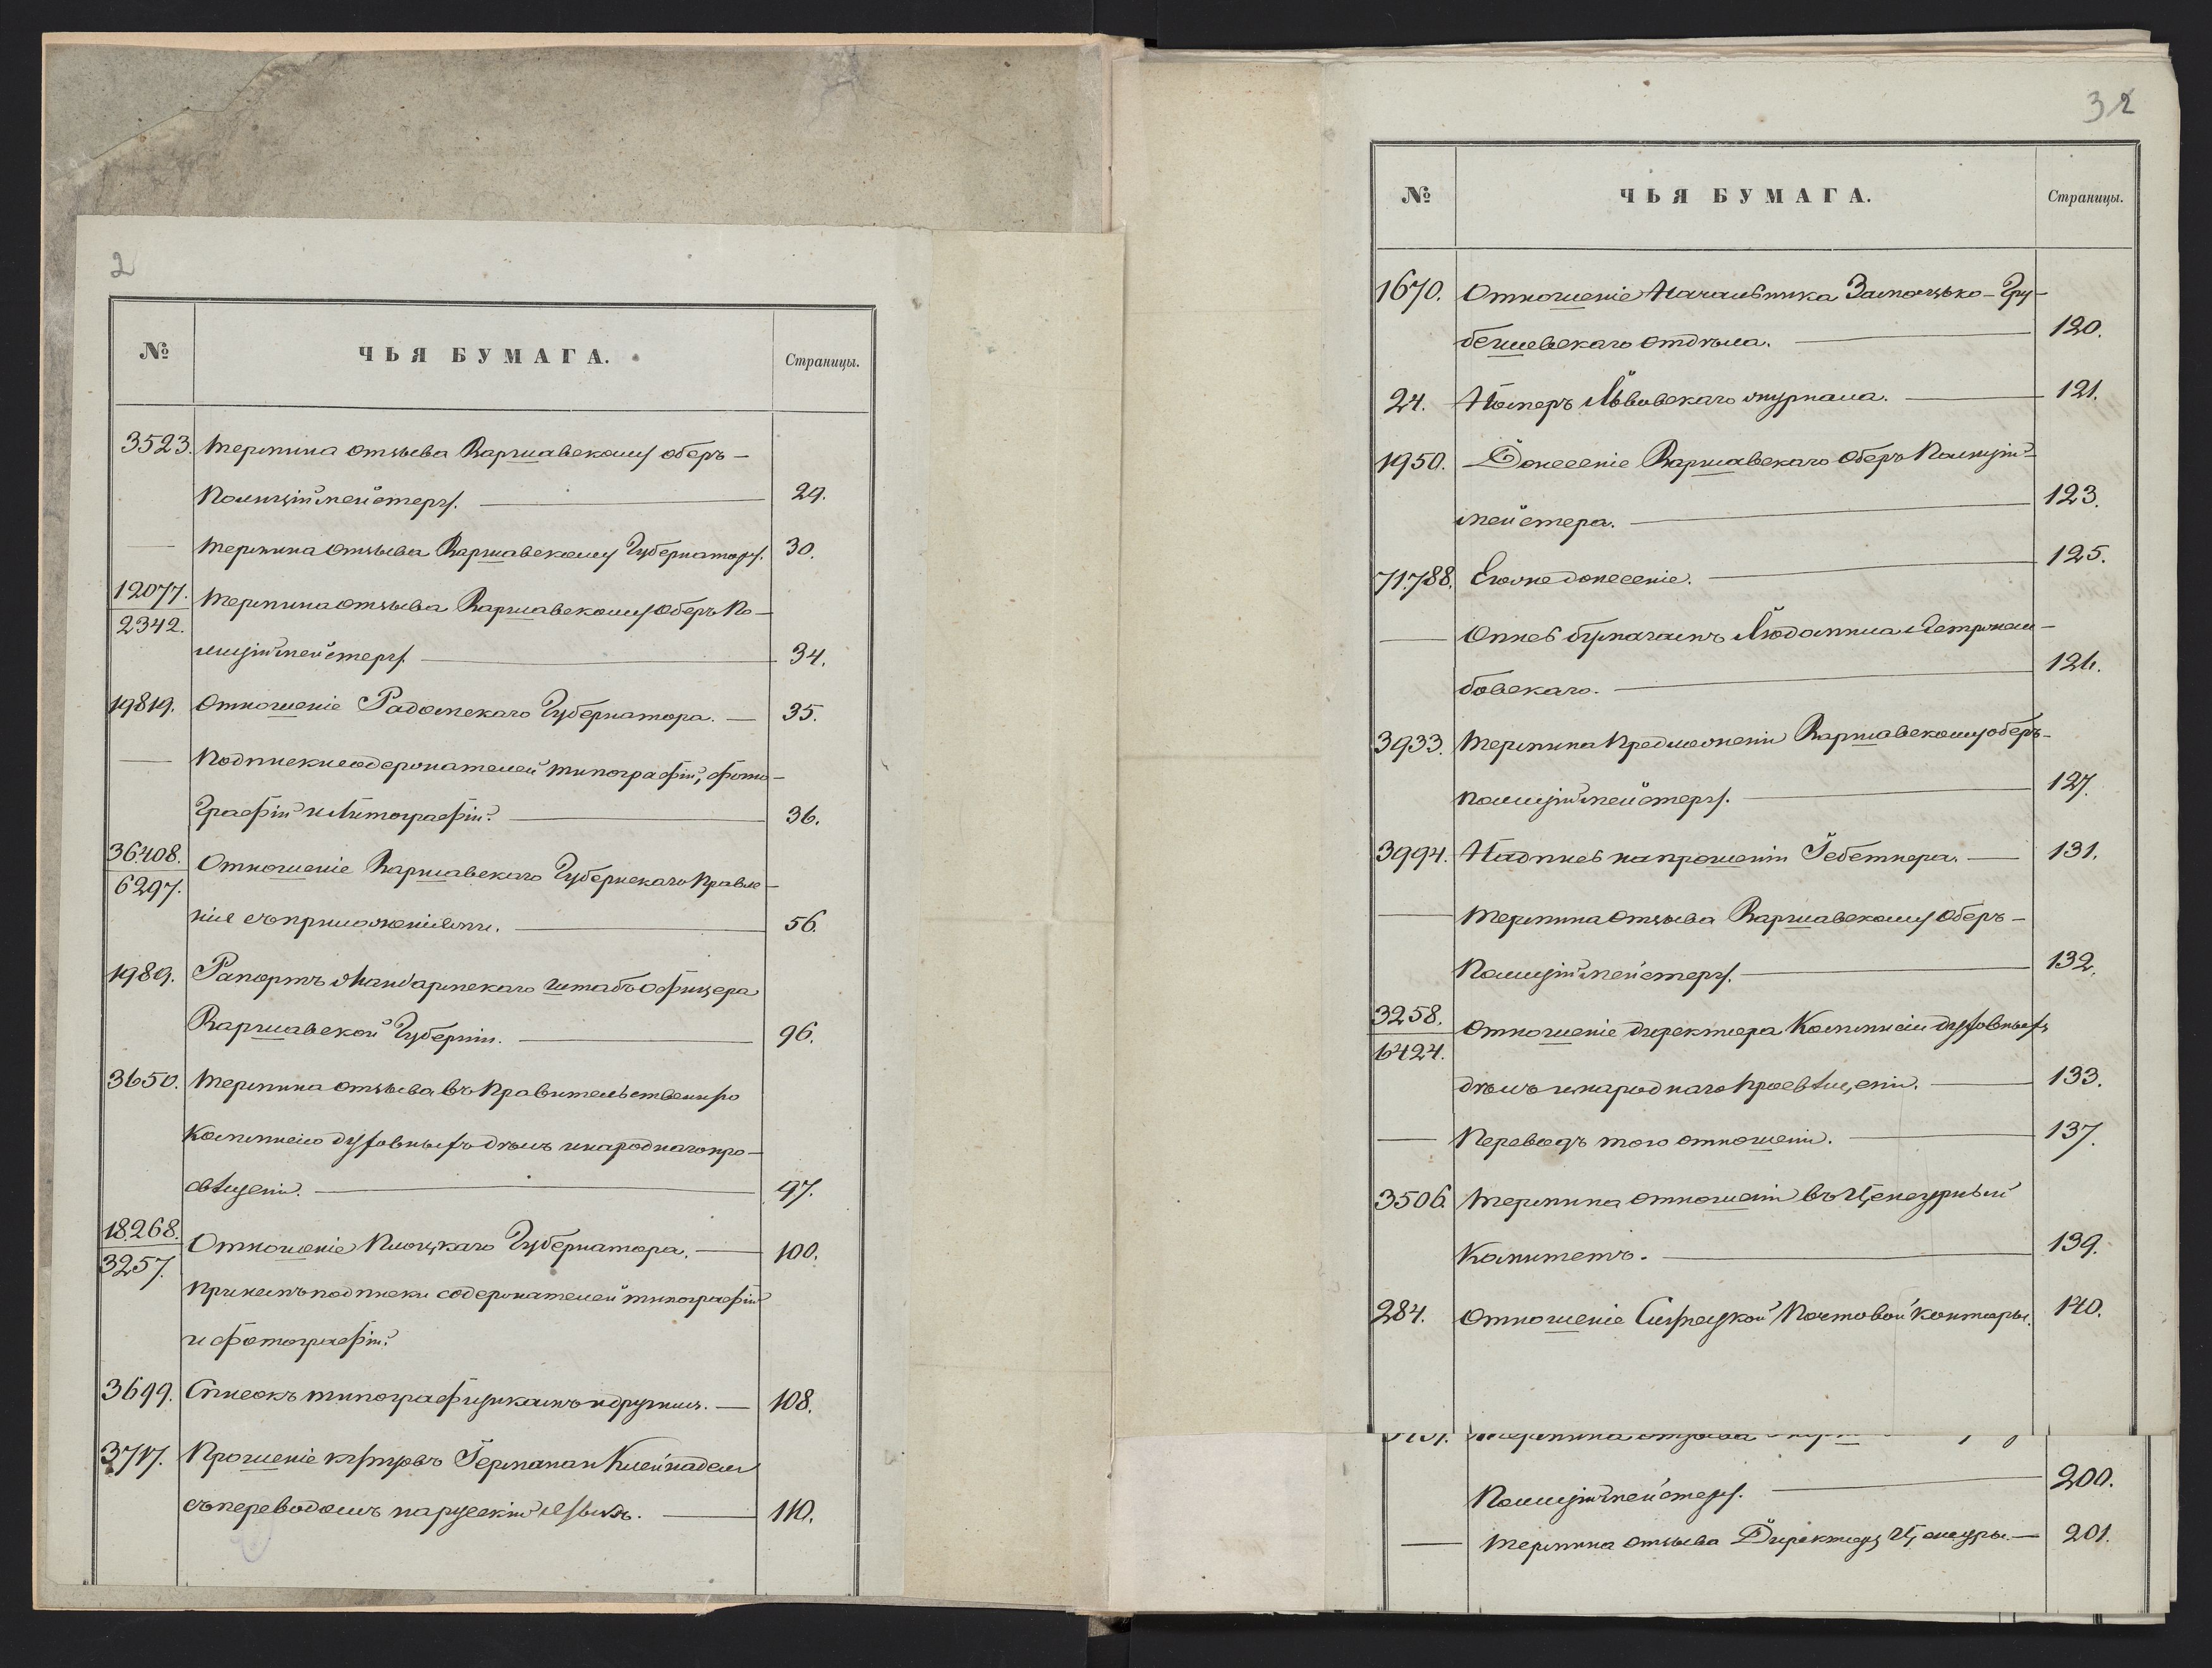 2
№ ЧЬЯ БУМАГА. Страницы.
3523. Термина отзыва Варшавскому оберъ-
Полиціймейстеру. — 29.
— Термина отзыва Варшавскому Губернатору. 30.
12077. Термина отзыва Варшавскому Оберъ По-
2342.
лиціймейстеру. — 34.
19819. Отношеніе Радомскаго Губернатора. — 35.
— Подписки содержателей типографій, фото-
Графій и Литографій. — 36.
36408. Отношеніе Варшавскаго Губернскаго Правле-
6297.
нія съ приложеніями. — 56.
1989. Рапортъ Жандармскаго штабъ Офицера
Варшавской Губерніи. — 96.
3650. Термина отзыва въ Правительственную
Коммисію духовныхъ дѣлъ и народнаго про-
свѣщенія. — 97.
18.268. Отношеніе Плоцкаго Губернатора. — 100.
3257.
При немъ подписки содержателей типографій
и фотографій.
3699. Списокъ типографщикамъ и другимъ. — 108.
3717. Прошеніе Германа
съ переводомъ на русскій языкъ. — 110.
32
№ ЧЬЯ БУМАГА. Страницы.
1670. Отношеніе Начальника Замосцько-Гру-
бешевскаго отдѣла. — 120.
24. Номеръ Львовскаго журнала. — 121.
1950. Донесеніе Варшавскаго Оберъ Полицій-
мейстера. — 123.
71.788. Его же донесеніе. — 125.
— Опись бумагамъ Людомила
бовскаго. — 126.
3933. Термина Предложенія Варшавскому оберъ-
полиціймейстеру. — 127.
3994. Надпись на прошеніи Гебетнера. — 131.
— Термина Отзыва Варшавскому Оберъ-
Полиціймейстеру. — 132.
3258. Отношеніе директора Коммисіи духовныхъ
6424.
дѣлъ и народнаго Просвѣщенія. — 133.
— Переводъ того отношенія. — 137.
3506. Термина отношенія въ Ценсурный
Комитетъ. — 139.
284. Отношеніе Почтовой Конторы. 140.
Термина отзыва
Полиціймейстеру. — 200.
— Термина отзыва Директору Ценсуры. — 201.